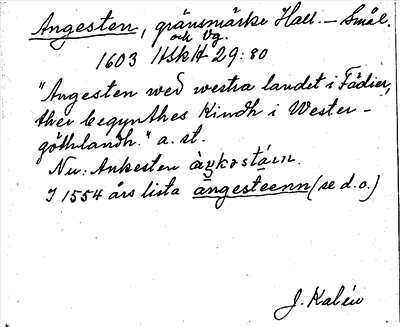 Angesten, gränsmärke Hall. – Smål.
och Vg.
1603 HSkH 29:80
"Angesten wed westra landet i Fädier,
ther begynthes Kindh i Wester-
göthlandh." a. st.
Nu: Ankesten àŋkɑstá̄ɪn.
I 1554 års lista ängesteenn (se d.o.)
J. Kalén